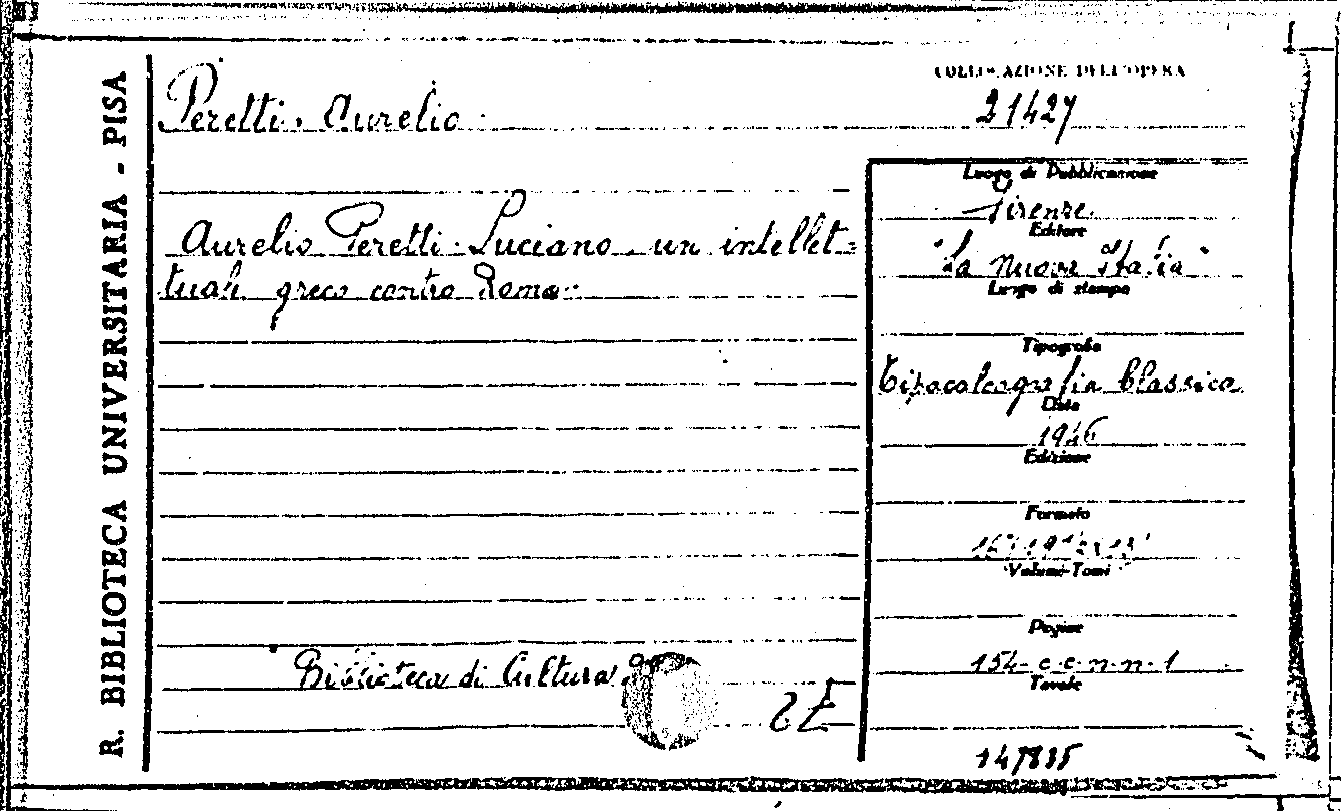 R. BIBLIOTECA UNIVERSITARIA - PISA
Peretti. Aurelio.
COLLOCAZIONE DELL'OPERA
21427
Aurelio Peretti. Luciano. un intellet=
tuale greco contro Roma.
Luogo di Pubblicazione
Firenze.
Editore
"La nuova Italia"
Luogo di stampa
Tipografia
Tipocalcografia Classica
Data
1946
Edizione
Formato
Volumi-Tomi
Pagine
154-c.c.n.n.1
Tavole
Biblioteca di Cultura
147835